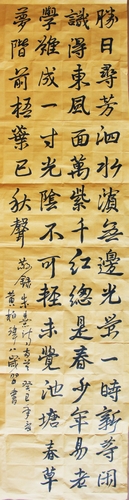 勝日尋芳泗水濱無邊光景一時新等閑
識得東風面萬紫千紅總是春少年易老
學難成一寸光陰不可輕未覺池塘春草
夢階前梧葉已秋聲